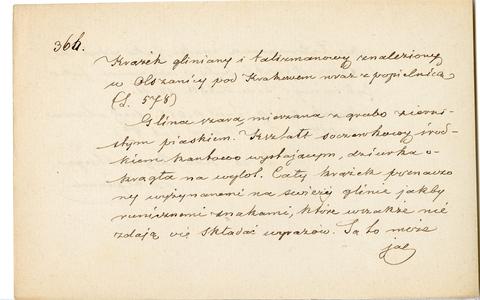 36b.
Krążek gliniany i talizmanowy znaleziony
w Olszanicy pod Krakowem wraz z popielnicą
(L. 578)
Glina szara, mierzana z grubo ziarni-
stym piaskiem. Kształt soczewkowy środ-
kiem kantowo wystającym, dziurka o-
krągła na wylot. Cały krążek poznaczo
ny wyżynanemi na świeżej glinie jakby
runicznemi znakami, które wszakże nie
zdają się składać wyrazów. Są to może
jac